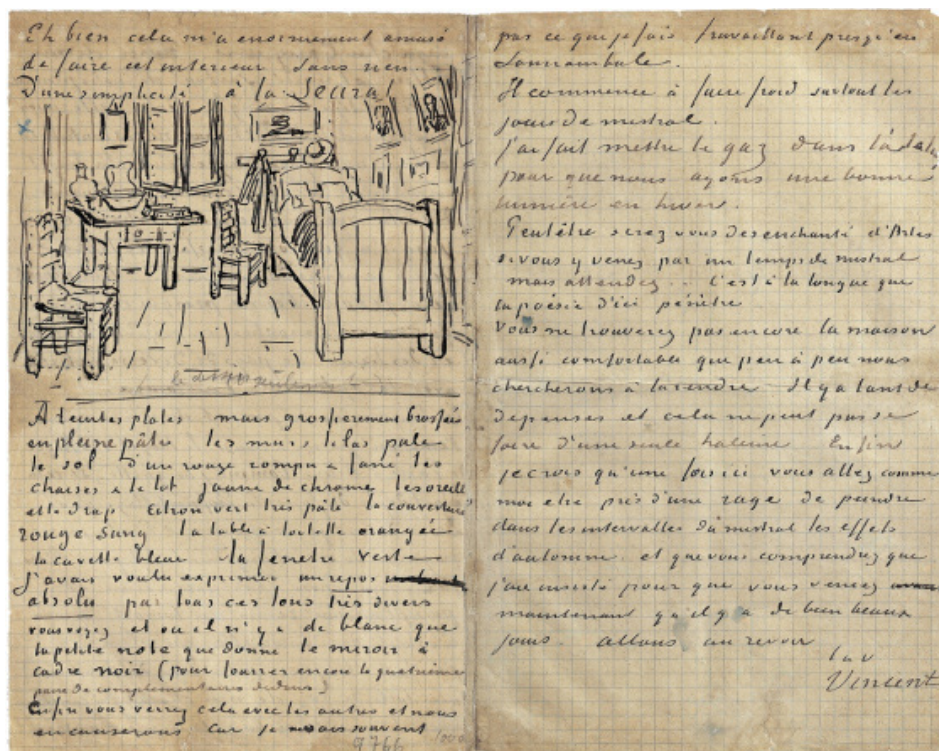 Eh bien cela m'a enormement amusé
de faire cet interieur sans rien.
D'une simplicité à la Seurat
à teintes plates mais grossierement brossées
en pleine pâte les murs lilas pale
le sol d'un rouge rompu & fané les
chaises & le lit jaune de chrome les oreillers
et le drap citron vert très pâle la couverture
rouge sang la table à toilette orangée
la cuvette bleue la fenetre verte
J'avais voulu exprimer un repos
absolu par tous ces tons très divers
vous voyez et où il n'y a de blanc que
la petite note que donne le miroir à
cadre noir (pour fourrer encore la quatrieme
paire de complementaires dedans)
Enfin vous verrez cela avec les autres et nous
en causerons car je ne sais souvent
9766
pas ce que je fais travaillant presqu'en
somnambule.
Il commence à faire froid surtout les
jours de mistral.
J'ai fait mettre le gaz dans l'atelier
pour que nous ayons une bonne
lumière en hiver.
Peutêtre serez vous desenchanté d'Arles
si vous y venez par un temps de mistral
mais attendez.. C'est à la longue que
la poésie d'ici pénètre
Vous ne trouverez pas encore la maison
aussi comfortable que peu à peu nous
chercherons à la rendre. Il y a tant de
depenses et cela ne peut pas se
faire d'une seule haleine Enfin
je crois qu'une fois ici vous allez comme
moi etre pris d'une rage de peindre
dans les intervalles du mistral les effets
d'automne. et que vous comprendrez que
j'aie insisté pour que vous venez
maintenant qu'il y a de bien beaux
jours. allons au revoir
t. à v.
Vincent